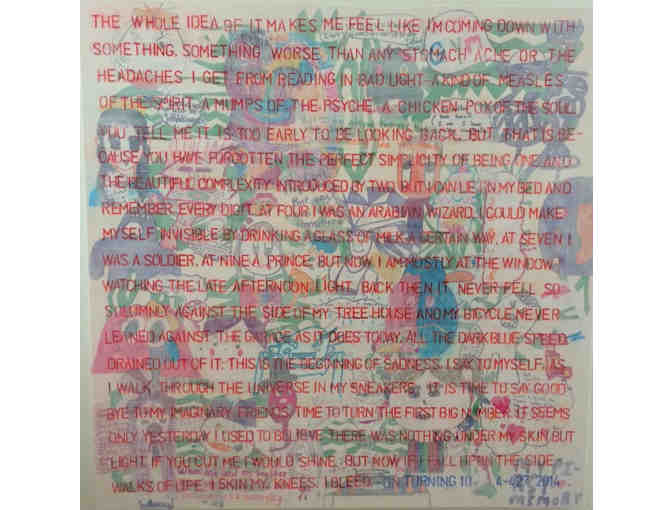 THE WHOLE IDEA OF IT MAKES ME FEEL LIKE I'M COMING DOWN WITH
SOMETHING, SOMETHING WORSE THAN ANY STOMACH ACHE OR THE
HEADACHES I GET FROM READING IN BAD LIGHT-A KIND OF MEASLES
OF THE SPIRIT, A MUMPS OF THE PSYCHE, A CHICKEN POX OF THE SOUL
YOU TELL ME IT IS TOO EARLY TO BE LOOKING BACK, BUT THAT IS BE-
CAUSE YOU HAVE FORGOTTEN THE PERFECT SIMPLICITY OF BEING ONE AND
THE BEAUTIFUL COMPLEXITY INTRODUCED BY TWO, BUT I CAN LIE IN MY BED AND
REMEMBER EVERY DIGIT. AT FOUR I WAS AN ARABIAN WIZARD. I COULD MAKE
MYSELF INVISIBLE BY DRINKING A GLASS OF MILK A CERTAIN WAY. AT SEVEN I
WAS A SOLDIER, AT NINE A PRINCE. BUT NOW I AM MOSTLY AT THE WINDOW
WATCHING THE LATE AFTERNOON LIGHT. BACK THEN IT NEVER FELL SO
SOLUMNLY AGAINST THE SIDE OF MY TREE HOUSE AND MY BICYCLE NEVER
LEANED AGAINST THE GARAGE AS IT DOES TODAY, ALL THE DARK BLUE SPEED
DRAINED OUT OF IT. THIS IS THE BEGINNING OF SADNESS, I SAY TO MYSELF, AS
I WALK THROUGH THE UNIVERSE IN MY SNEAKERS. IT IS TIME TO SAY GOOD-
BYE TO MY IMAGINARY FRIENDS, TIME TO TURN THE FIRST BIG NUMBER. IT SEEMS
ONLY YESTERDAY I USED TO BELIEVE THERE WAS NOTHING UNDER MY SKIN BUT
LIGHT. IF YOU CUT ME I WOULD SHINE. BUT NOW IF I FALL UPON THE SIDE
WALKS OF LIFE, I SKIN MY KNEES. I BLEED. -ON TURNING 10